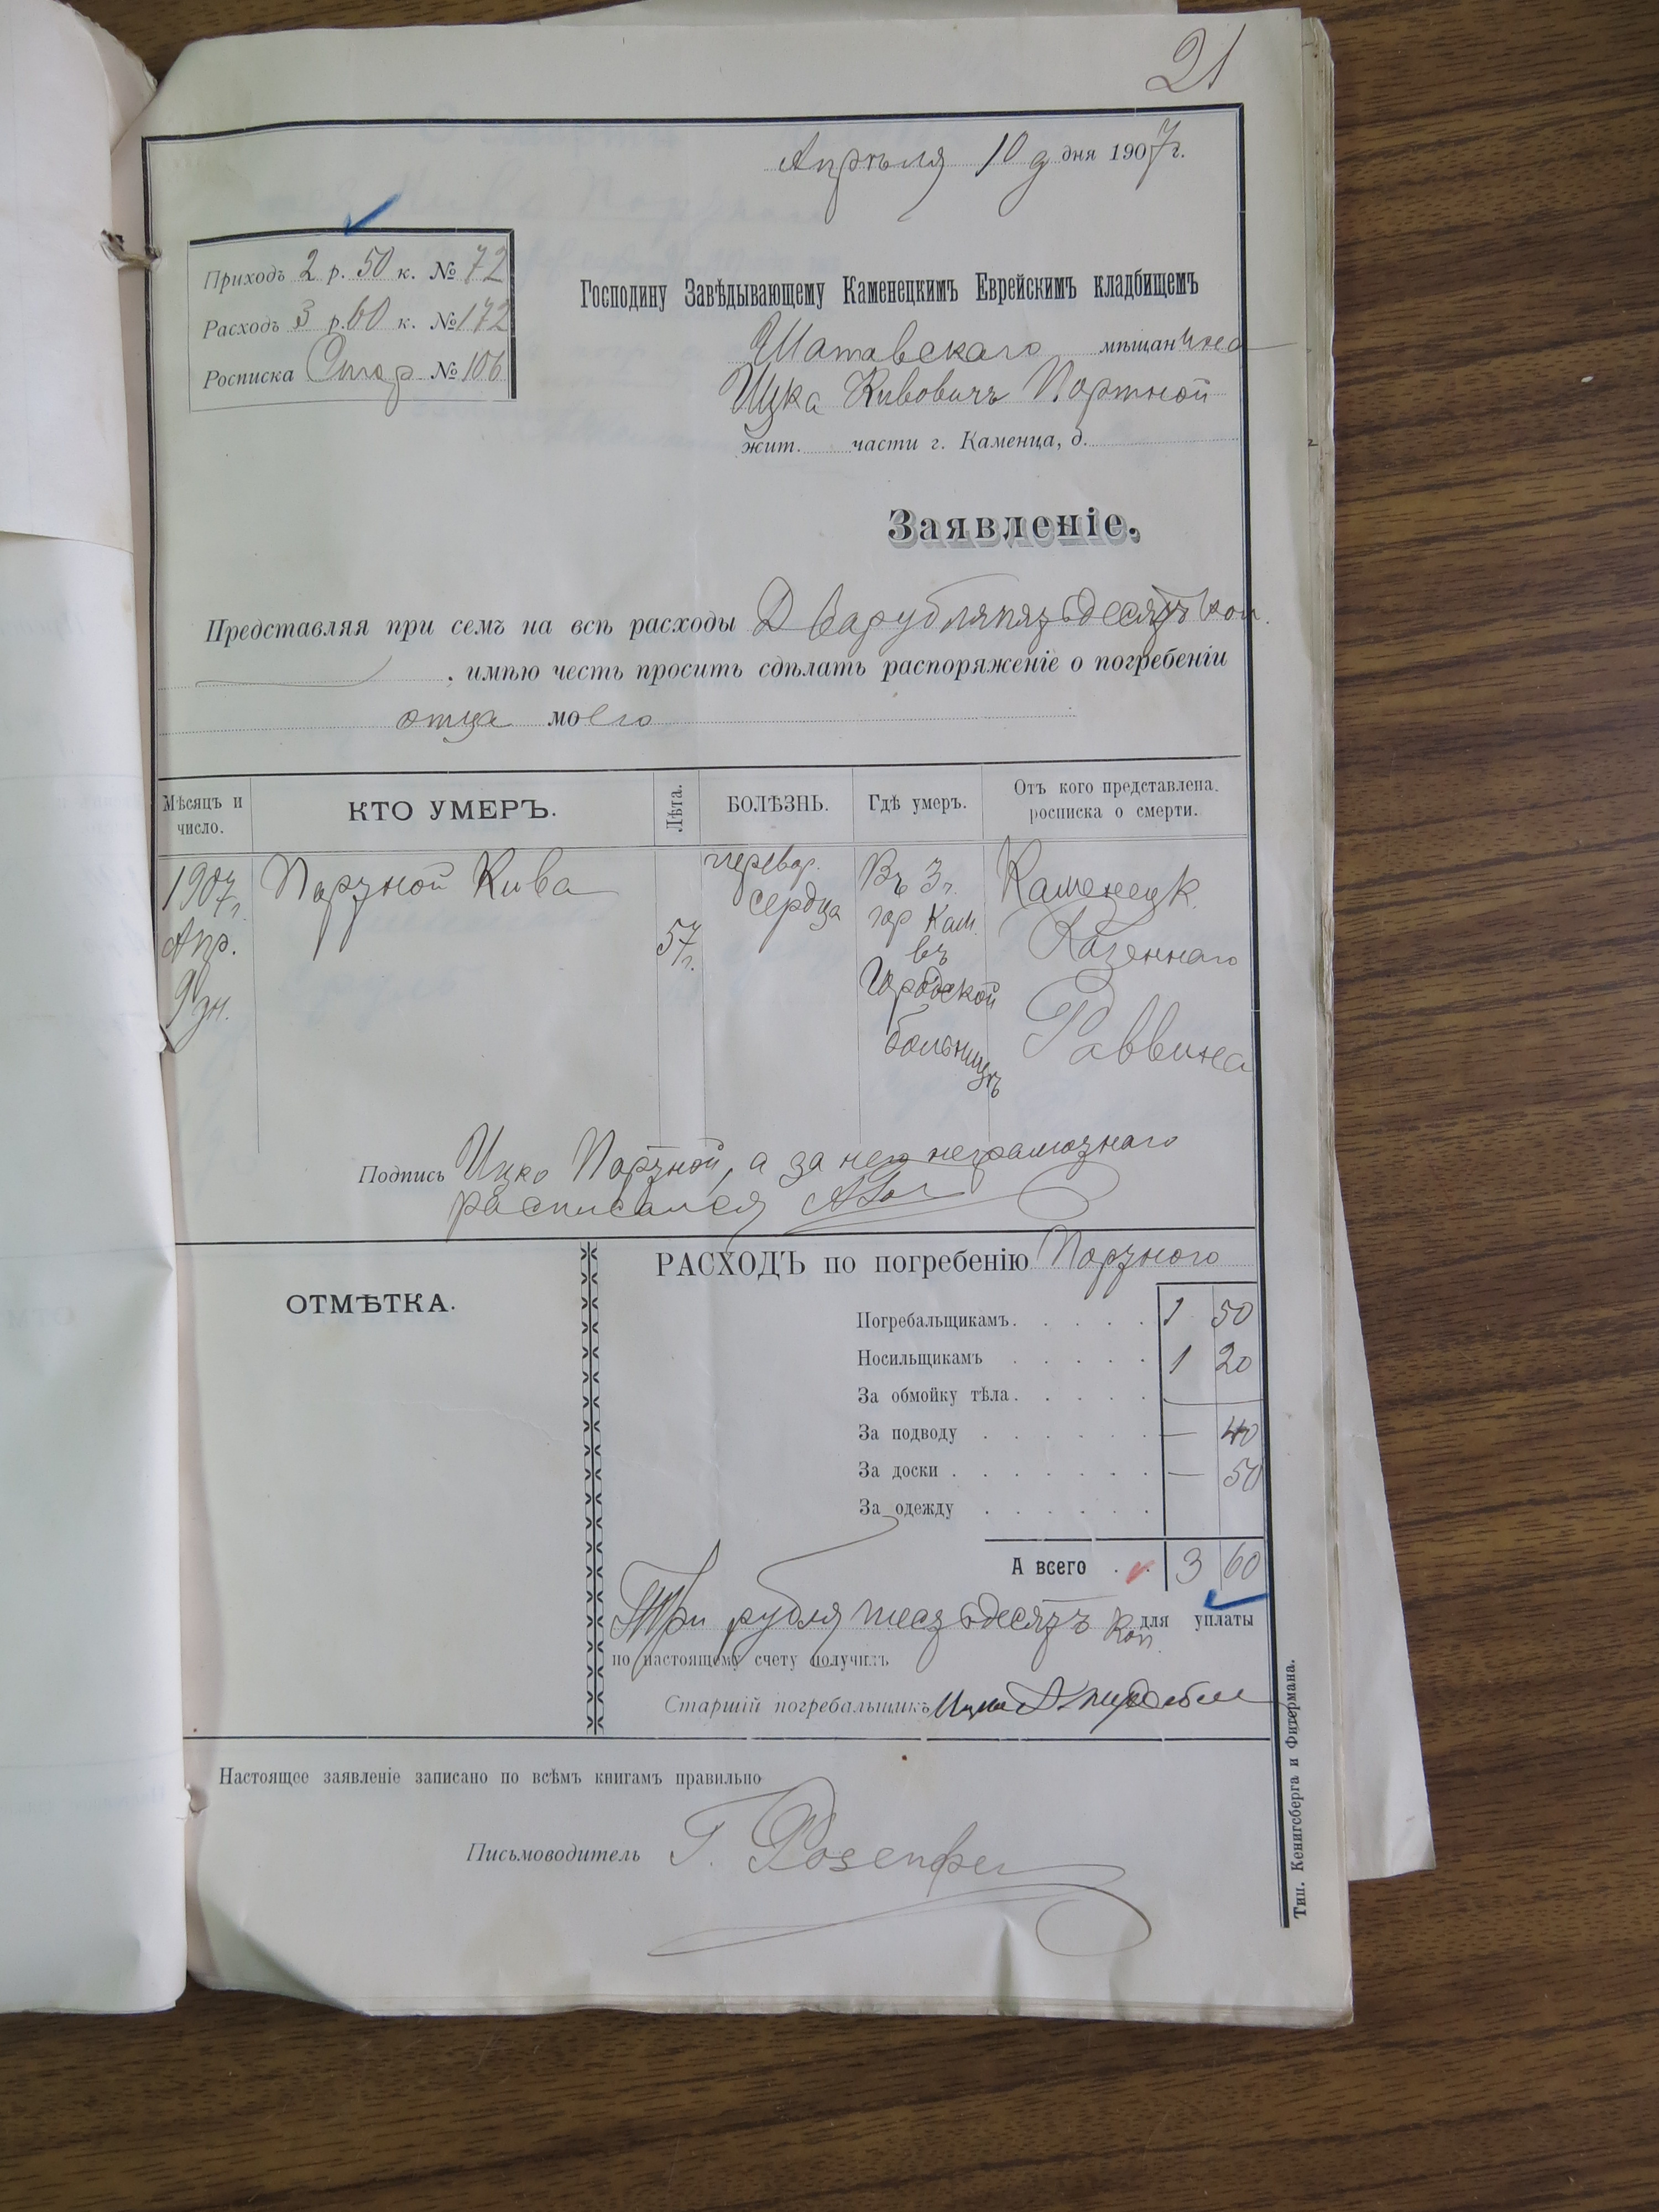 21
Апрѣля 10 д дня 1907 г.
Приходъ 2 р. 50 к. № 72
Расходъ 3 р. 60 к. № 172
Росписка Стар № 106
Господину Завѣдывающему Каменецкимъ Еврейскимъ кладбищемъ
Шатавскаго мѣщанина
Ицка Кивовичъ Портной
жит. части г. Каменца, д.
Заявленіе.
Представляя при семъ на всѣ расходы Два рубля пятьдесятъ коп.
, имѣю честь просить сдѣлать распоряженіе о погребеніи
отца моего
Мѣсяцъ и число.
КТО УМЕРЪ.
Лѣта.
БОЛѢЗНЬ.
Гдѣ умеръ.
Отъ кого представлена росписка о смерти.
1907 г. Апр. 9 дн.
Портной Кива
57 г.
сердца
Въ
гор Кам.
въ
Городской
больницѣ
Каменецк.
Казеннаго
Раввина
Подпись Ицко Портной, а за нег неграмотнаго
расписался
РАСХОДЪ по погребенію Портного
ОТМѢТКА.
Погребальщикамъ. 1 50
Носильщикамъ 1 20
За обмойку тѣла. —
За подводу — 40
За доски — 50
За одежду
А всего 3 60
Три рубля шестьдесятъ коп для уплаты
по настоящему счету получилъ
Старшій погребальщикъ
Настоящее заявленіе записано по всѣмъ книгамъ правильно
Письмоводитель Г.
Тип. Кенигсберга и Фитермана.